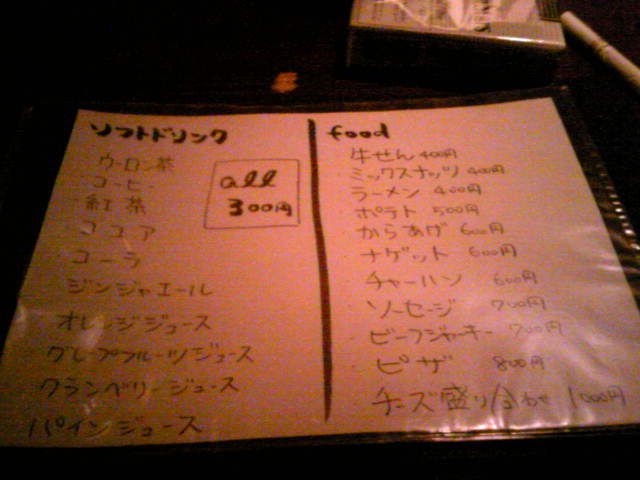 ソフトドリンク
ウーロン茶
コーヒー
紅茶
ココア
コーラ
ジンジャエール
オレンジジュース
グレープフルーツジュース
クランベリージュース
パインジュース
all
300円
food
牛せん 400円
ミックスナッツ 400円
ラーメン 400円
ポテト 500円
からあげ 600円
ナゲット 600円
チャーハン 600円
ソーセージ 700円
ビーフジャーキー 700円
ピザ 800円
チーズ盛り合わせ 1000円